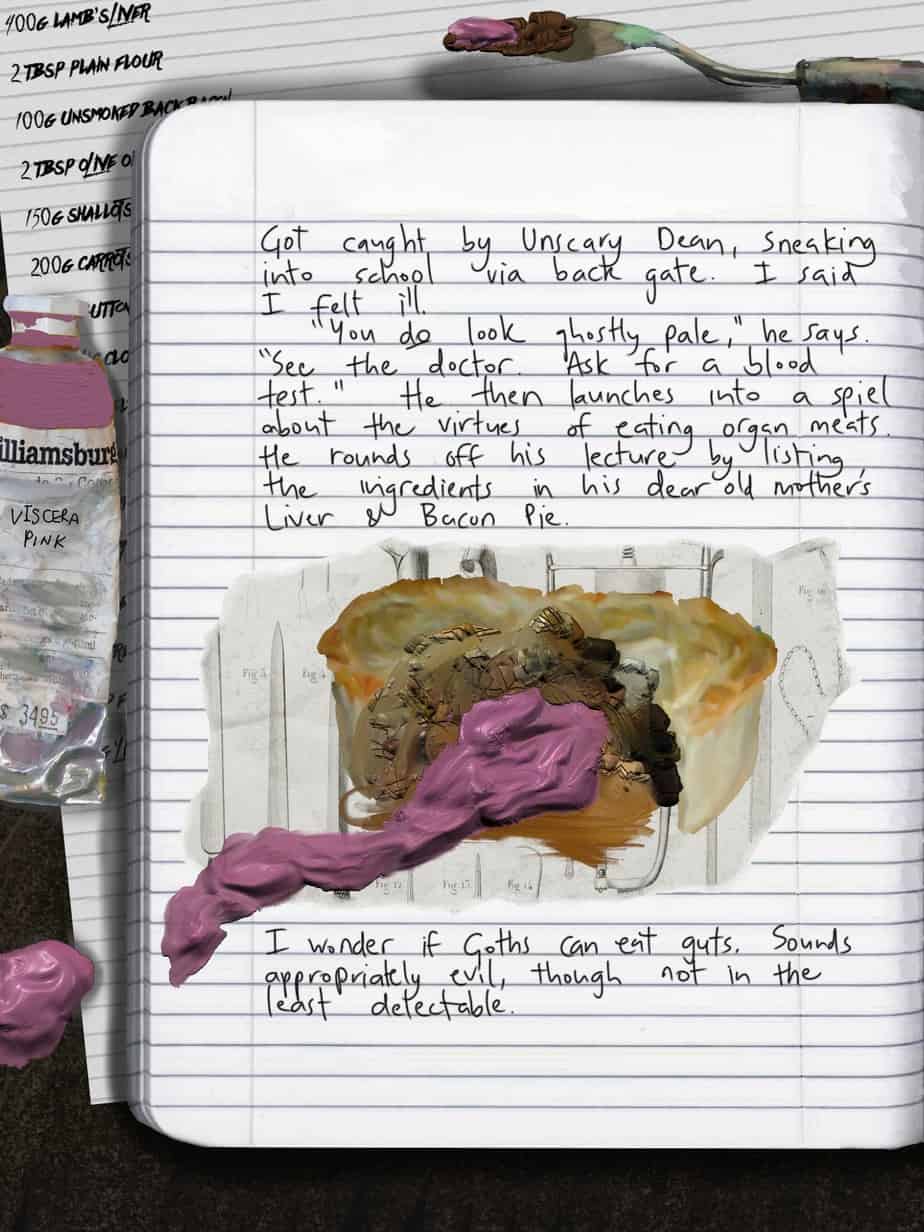 400G LAMB'S LIVER
2 TBSP PLAIN FLOUR
100G UNSMOKED BACK BACON
2 TBSP OLIVE O
150G SHALLOTS
200G CARROTS
UTTO
CLO
illiamsburg
VISCERA
PINK
$ 3495
Got caught by Unscary Dean, sneaking
into school via back gate. I said
I felt ill.
"You do look ghostly pale," he says.
"See the doctor. Ask for a blood
test." He then launches into a spiel
about the virtues of eating organ meats.
He rounds off his lecture by listing
the ingredients in his dear old mother's
Liver & Bacon Pie.
Fig 3
Fig 4
Fig 12
Fig 13
Fig 14
I wonder if Goths can eat guts. Sounds
appropriately evil, though not in the
least detectable.